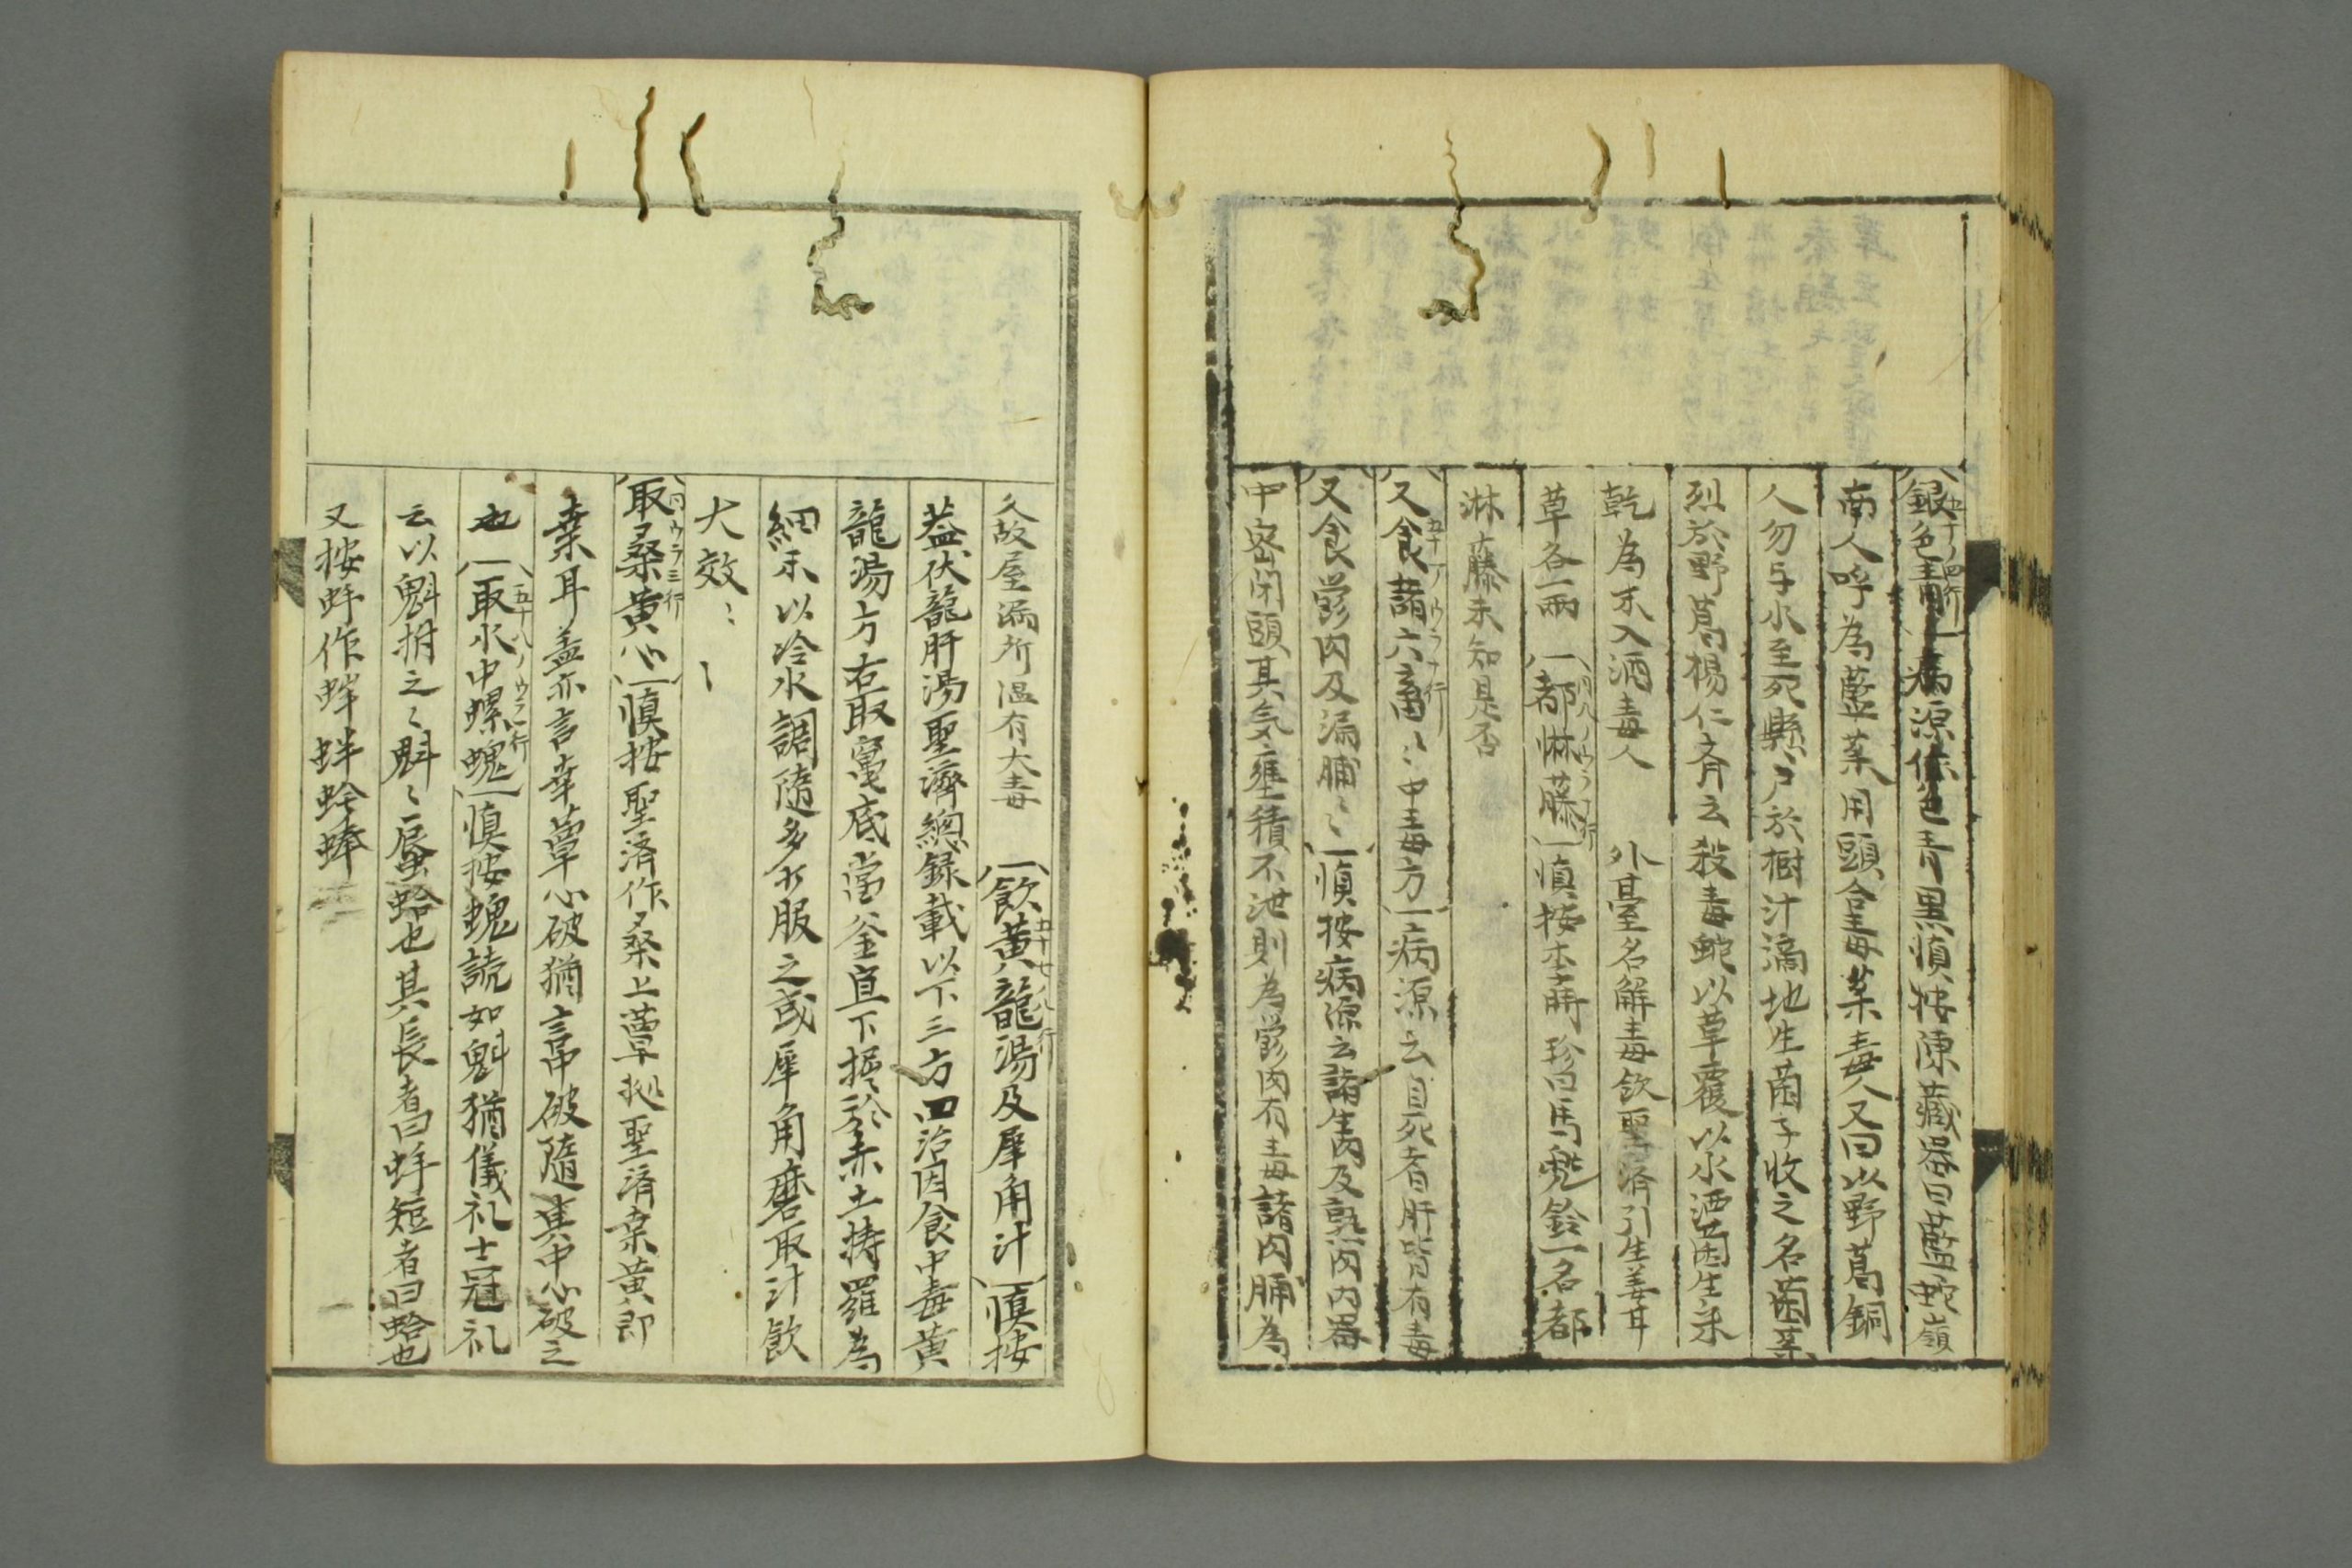 銀色青 五十ノ四行 病源作色青黒慎按陳藏器曰藍蛇嶺
南人呼為藍菜用頭合毒菜毒人又曰以野葛飼
人勿与水至死縣尸於樹汁滴地生菌子收之名菌菜
烈於野葛楊仁斉云殺毒蛇以草覆以水洒菌生采
乾為末入酒毒人　外臺名解毒飲聖済引生姜甘
草各一兩 都惏藤 慎按本草時珍曰馬兜鈴一名都
淋藤未知是否
又食諸六畜〻中毒方 五十一ノウラ十行 病源云自死者肝皆有毒
又食鬱肉及漏脯〻 慎按病源云諸生肉及熟肉内器
中密閉頭其気壅積不泄則為鬱肉有毒諸肉脯為
久故屋漏所湿有大毒 飲黄龍湯及犀角汁 五十七ノ八行 慎按
蓋伏龍肝湯聖濟總録載以下三方四治因食中毒黄
龍湯方右取竃底當釜直下掘〻於赤土擣羅為
細末以冷水調隨多少服之或犀角磨取汁飲
大效〻
取桒黄心 同ウラ三行 慎按聖済作桒上蕈拠聖済桒黄即
桒耳蓋亦言桒蕈心破猶言中破隨其中心破之
也 取水中螺螝 五十八ノウラ一行 慎按螝読如魁猶儀礼士冠礼
云以魁柎之〻魁〻蜃蛤也其長者曰蚌短者曰蛤也
又按蚌作蜯蚌蛤蜯